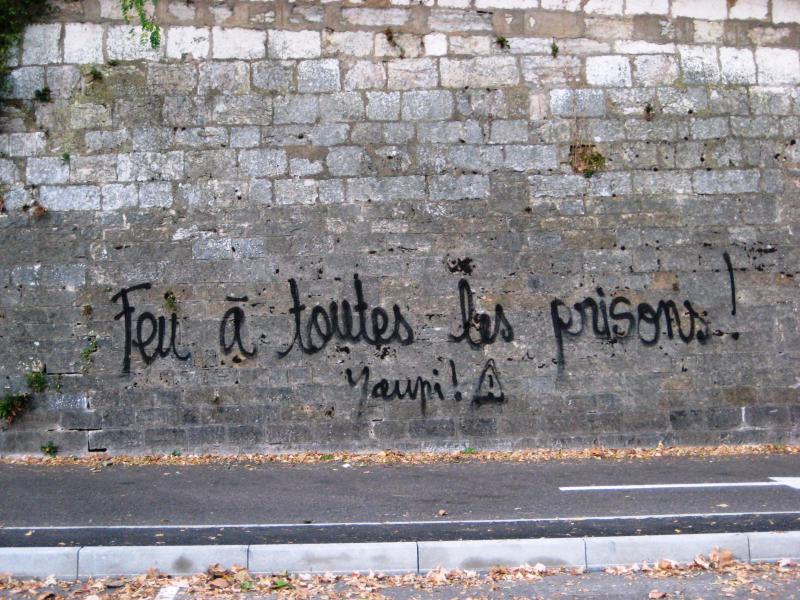 Feu à toutes les prisons!
Youpi!